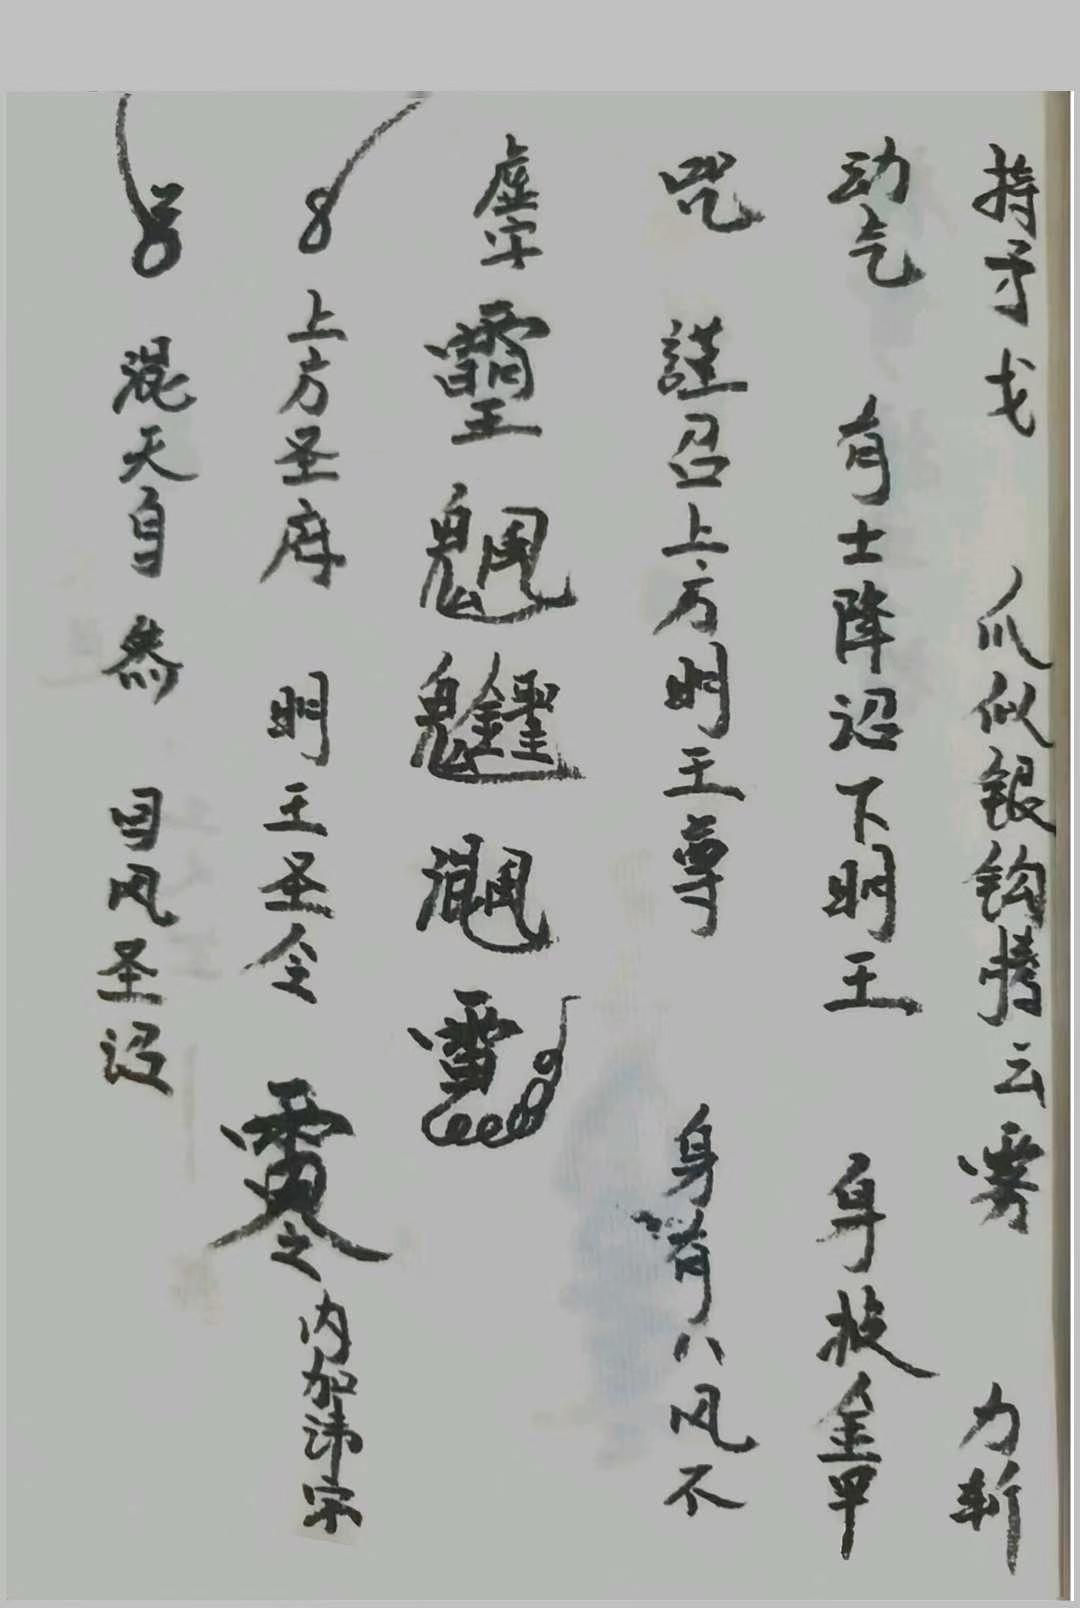 持矛戈 爪似银钩携云雾 力斩
动气 有士降诏下明王 身披金甲
咒 謹召上方明王尊 身有八风不
虚字
上方圣府 明王圣令 内加讳字
混天自然 自风圣诏